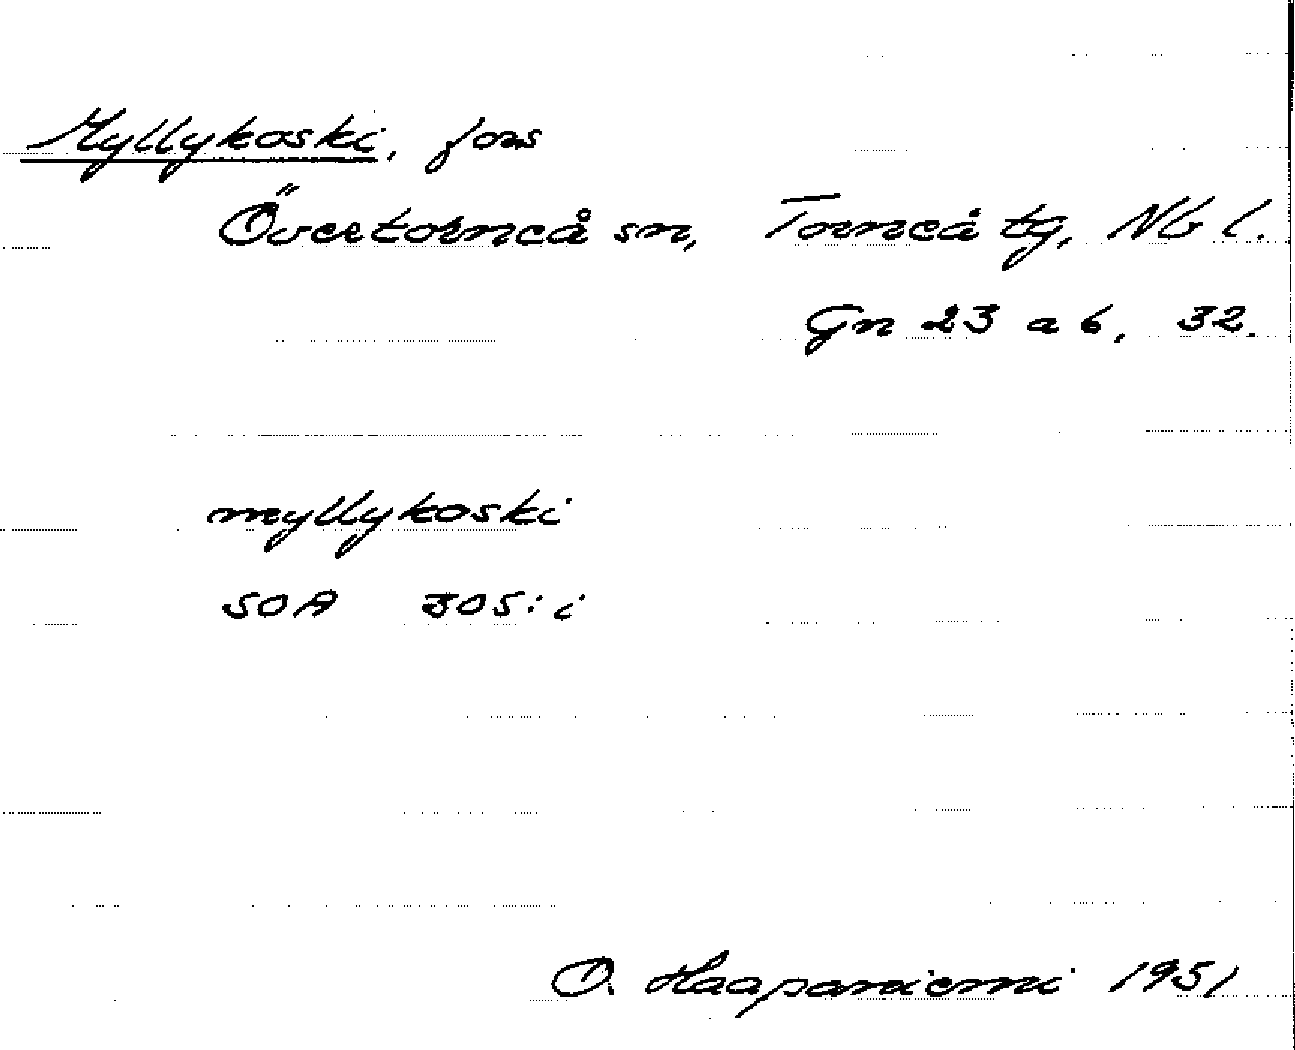 Myllykoski, fors
Övertorneå sn, Torneå tg, Nb l.
Gn 23 a b, 32.
myllykoski
SOA 305: i
O. Haapaniemi 1951